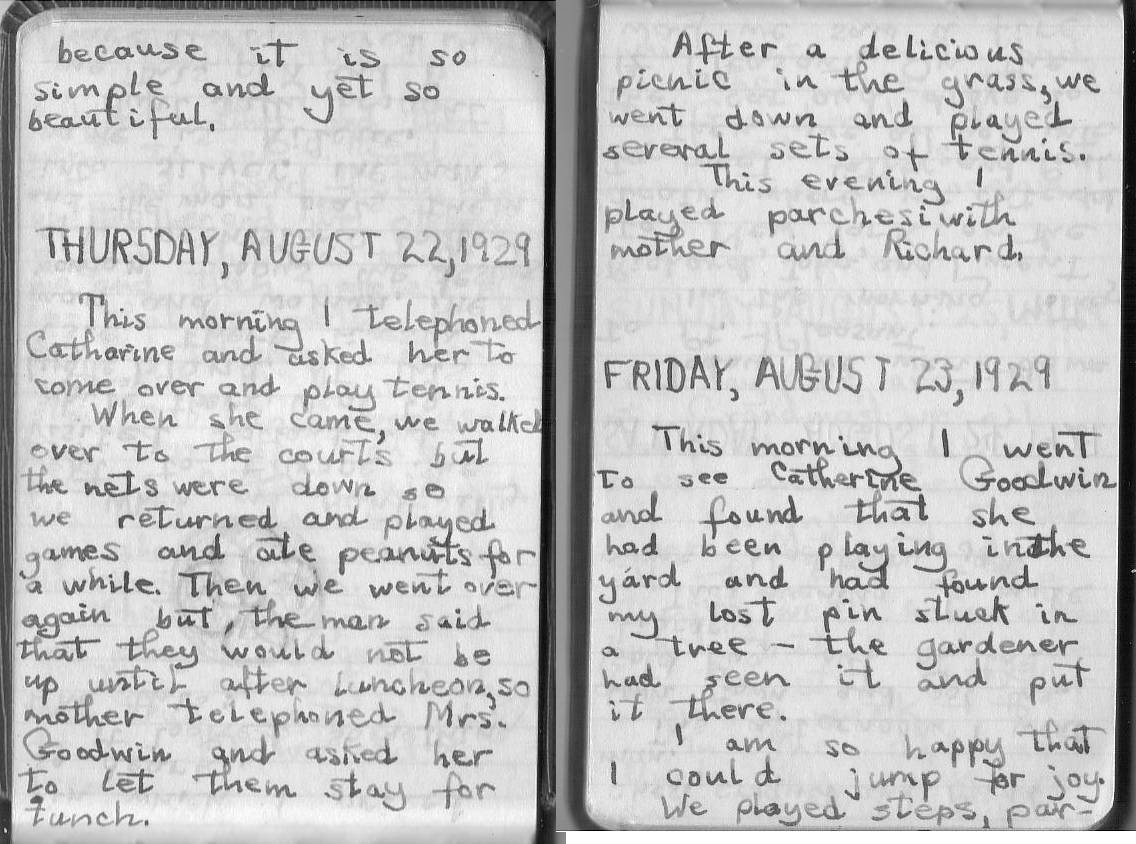 because it is so
simple and yet so
beautiful.
THURSDAY, AUGUST 22, 1929
This morning I telephoned
Catharine and asked her to
come over and play tennis.
When she came, we walked
over to the courts but
the nets were down so
we returned and played
games and ate peanuts for
a while. Then we went over
again but, the man said
that they would not be
up until after luncheon, so
mother telephoned Mrs.
Goodwin and asked her
to let them stay for
lunch.
After a delicious
picnic in the grass, we
went down and played
several sets of tennis.
This evening I
played parchesi with
mother and Richard.
FRIDAY, AUGUST 23, 1929
This morning I went
to see Catherine Goodwin
and found that she
had been playing in the
yard and had found
my lost pin stuck in
a tree — the gardener
had seen it and put
it there.
I am so happy that
I could jump for joy.
We played steps, par-